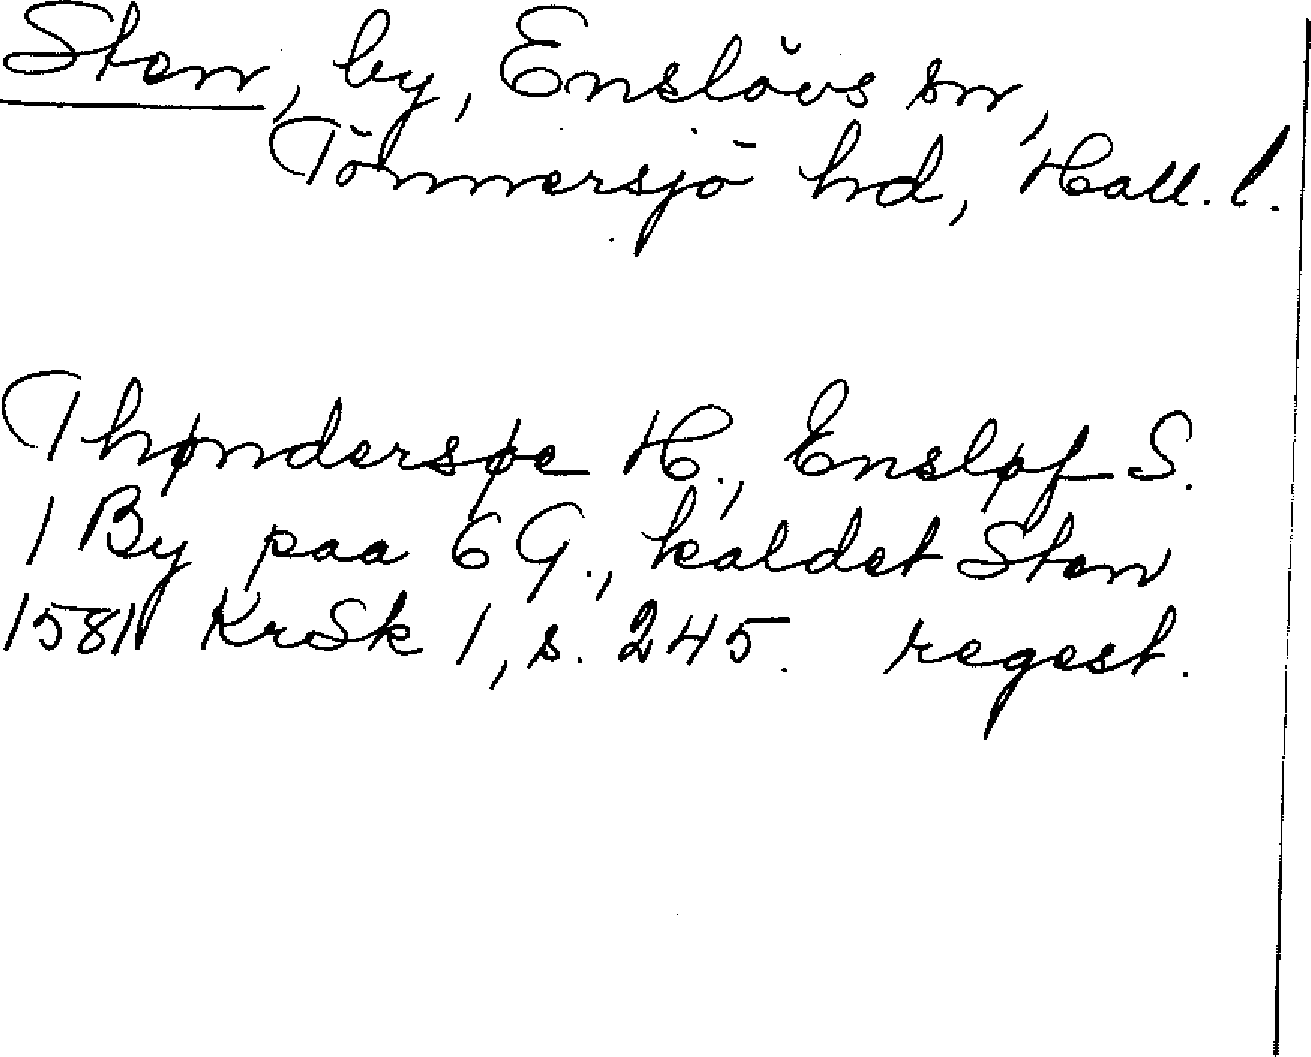 Sten, by, Enslövs sn,
Tönnersjö hd, Hall. l.
Thøndersøe H., Ensløf S.
1 By paa 6 G., kaldet Sten
1581 KrSk 1, s. 245. regest.